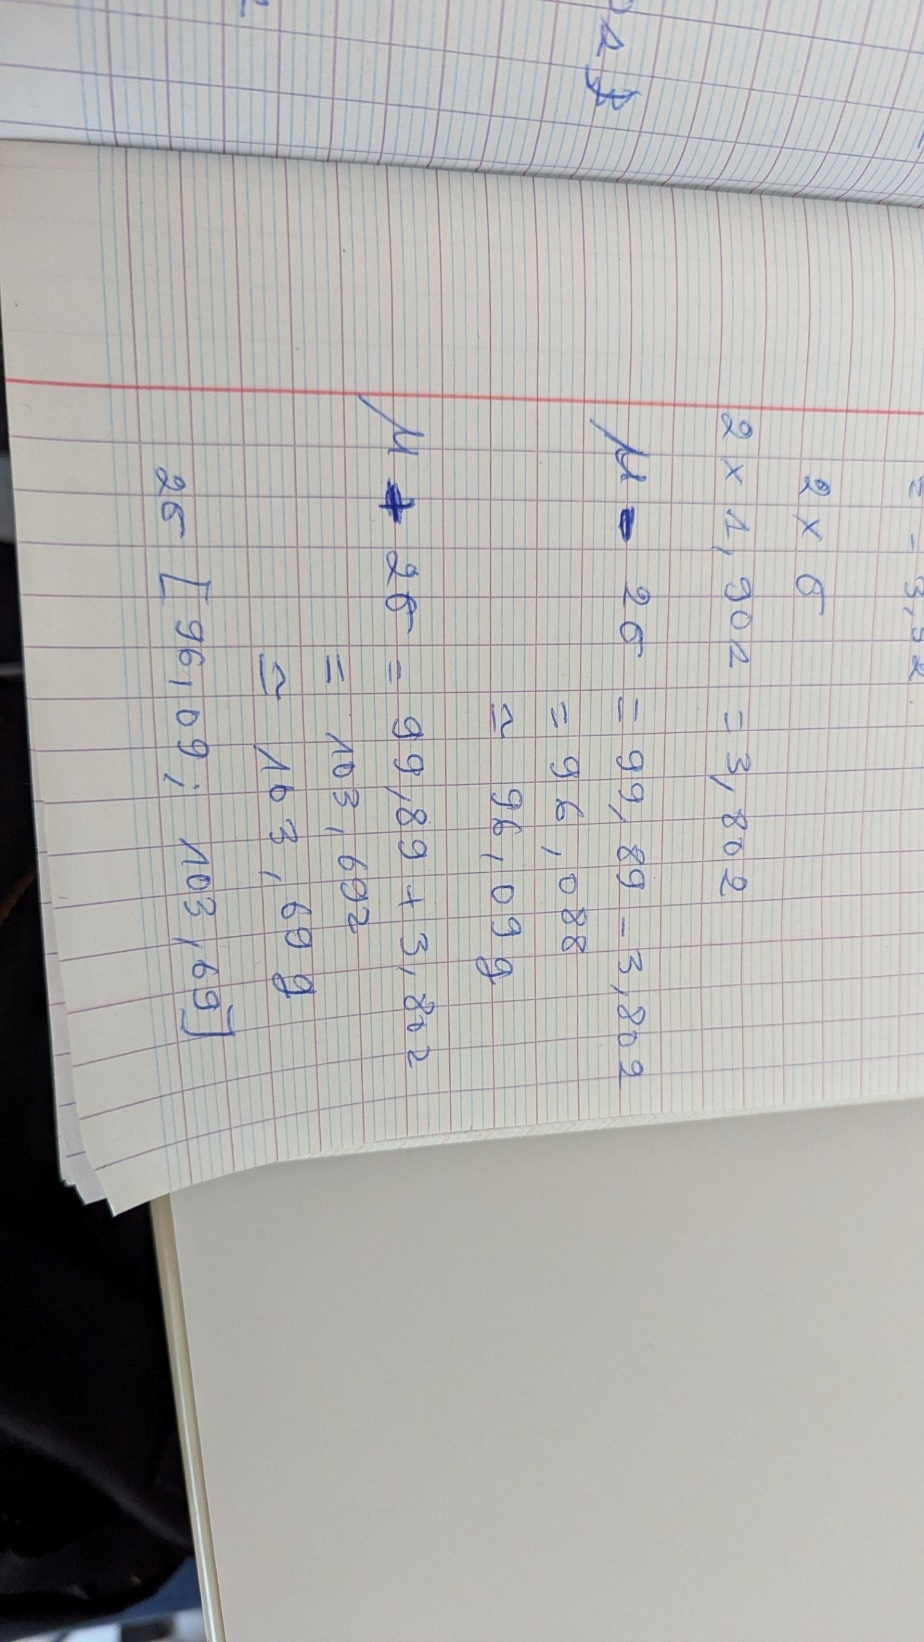 2 × σ
2 × 1,901 = 3,802
μ - 2σ = 99,89 - 3,802
= 96,088
≃ 96,09 g
μ + 2σ = 99,89 + 3,802
= 103,692
≃ 103,69 g
2σ [96,09 ; 103,69]